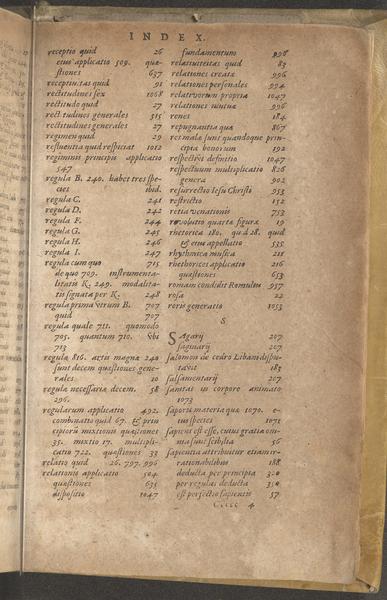 INDEX.
receptio quid 26
eius applicatio 509. quæ-
stiones 637
receptiuitas quid 91
rectitudines sex 1068
rectitudo quid 27
rectitudines generales 515
rectitudines generales 27
regimen quid 29
regiminis principis applicatio
547
regula B. 240. habet tres spe-
cies ibid.
regula C. 241
regula D. 242
regula F. 244
regula G. 245
regula H. 246
regula I. 247
regula cum quo 715
de quo 709. instrumenta-
litatis K. 249. modalita-
tis signata per K. 248
regula prima vtrum B. 707
quid 707
regula quale 711. quomodo
705. quantum 710. Vbi
713
regulæ 816. artis magnæ 240
sunt decem quæstiones gene-
rales. 10
regulæ necessariæ decem. 58
296.
regularum applicatio 492.
combinatio quid 67. & prin
cipiorū mixtionis quæstiones
35. mixtio 17. multipli-
catio 722. quæstiones 33
relatio quid 26. 797. 996
relationis applicatio 504
quæstiones 635
dispositio 1047
fundamentum 996
relatiuitas quid 83
relationes creatæ 996
relationes personales 994
relatiuorum propria 1047
relationes 996
renes 184
repugnantia quæ 867
res malæ sunt quandoque prin-
cipia bonorum 192
respectus definitio 1047
respectuum multiplicatio 826
genera 902
resurrectio Iesu Christi 953
restrictio 152
retia venationis 753
reuolutio quartæ figuræ 19
rhetorica 180. quid 28. quid
& eius appellatio 535
rhythmica musica 218
rhethorices applicatio 216
quæstiones 653
romam condidit Romulus 957
rosa 22
roris generatio 1053
S
SAgarij 207
saginarij 207
salomon de cedro Libani dispu-
tauit 183
salsamentarij 207
sanitas in corpore animato
1073
saporis materia quæ 1070. e-
ius species 1071
sapiens est esse, cuius gratia om-
nia sunt scibilia 56
sapientia attribuitur etiam ir-
rationabilibus 188
deducta per principia 320
per regulas deducta 350
est perfectio sapientis 57